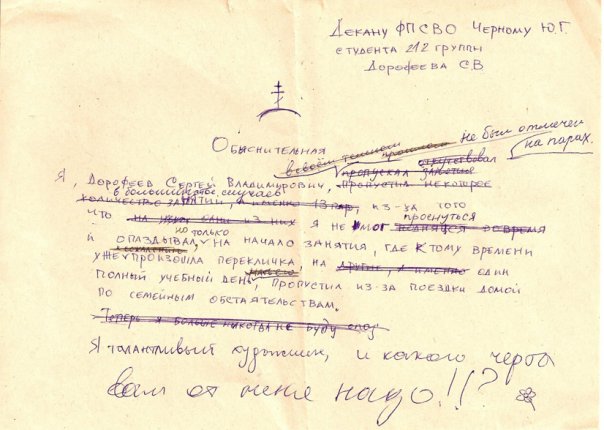 Декану ФПСВО Черному Ю.Г.
студента 212 группы
Дорофеева С.В
Объяснительная
в своём темном прошлом не был отмечен
отсутствовал на парах.
Я, Дорофеев Сергей Владимирович, пропускал занятие пропустил некоторое
в большинстве случаев
количество занятий, а именно 13 пар, из-за того
проснуться
что на одни из них я не мог поднятся во время
но только
и опаздывал, на начало занятия, где к тому времени
уже произошла перекличка, на другие, а именно один
полный учебный день, пропустил из-за поездки домой
по семейным обстаятельствам.
Теперь я больше никогда не буду
Я талантливый художник, и какого черта
вам от меня надо!!?